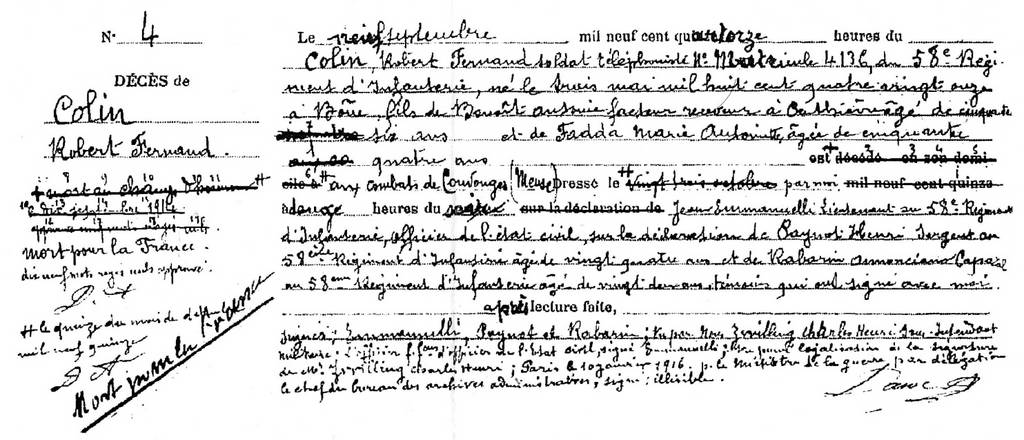 N° 4
DÉCÈS de
Colin
Robert Fernand.
mort au champ d'honneur
mort pour la France.
dix neuf mots rayés nuls approuvé.
le quinze du mois de
mil neuf quinze
Mort pour la France
Le neuf septembre mil neuf cent quatorze heures du
Colin, Robert Fernand soldat téléphoniste N° Matricule 4136, du 58e Régi-
ment d'Infanterie, né le trois mai mil huit cent quatre vingt onze
à Bône, fils de Benoît antoine facteur receveur à âgé de cinquante
six ans et de Fadda Marie Antoinette, âgée de cinquante
quatre ans est décédé en son domi-
cile à aux combats de Couvonges (Meuse) dressé le vingt trois octobre par moi mil neuf cent quinze
à douze heures du sur la déclaration de Jean Emmanuelli Lieutenant au 58e Régiment
d'Infanterie, officier de l'état civil, sur la déclaration de Paynot Henri Sergent au
58ème Régiment d'Infanterie âgé de vingt quatre ans et de Rabarin Caporal
au 58ème Régiment d'Infanterie âgé de vingt deux ans, témoins qui ont signé avec moi.
après lecture faite,
signés; Emmanuelli, Paynot et Rabarin; Vu par Nous Charles Henri Sous-Intendant
militaire; L'officier f. fons d'officier de l'Etat civil, signé Emmanuelli; Vu pour légalisation de la signature
de Mr Charles Henri; Paris le 10 janvier 1916, p. le Ministre de la guerre, par délégation
le chef du bureau des archives administratives, signé: illisible.